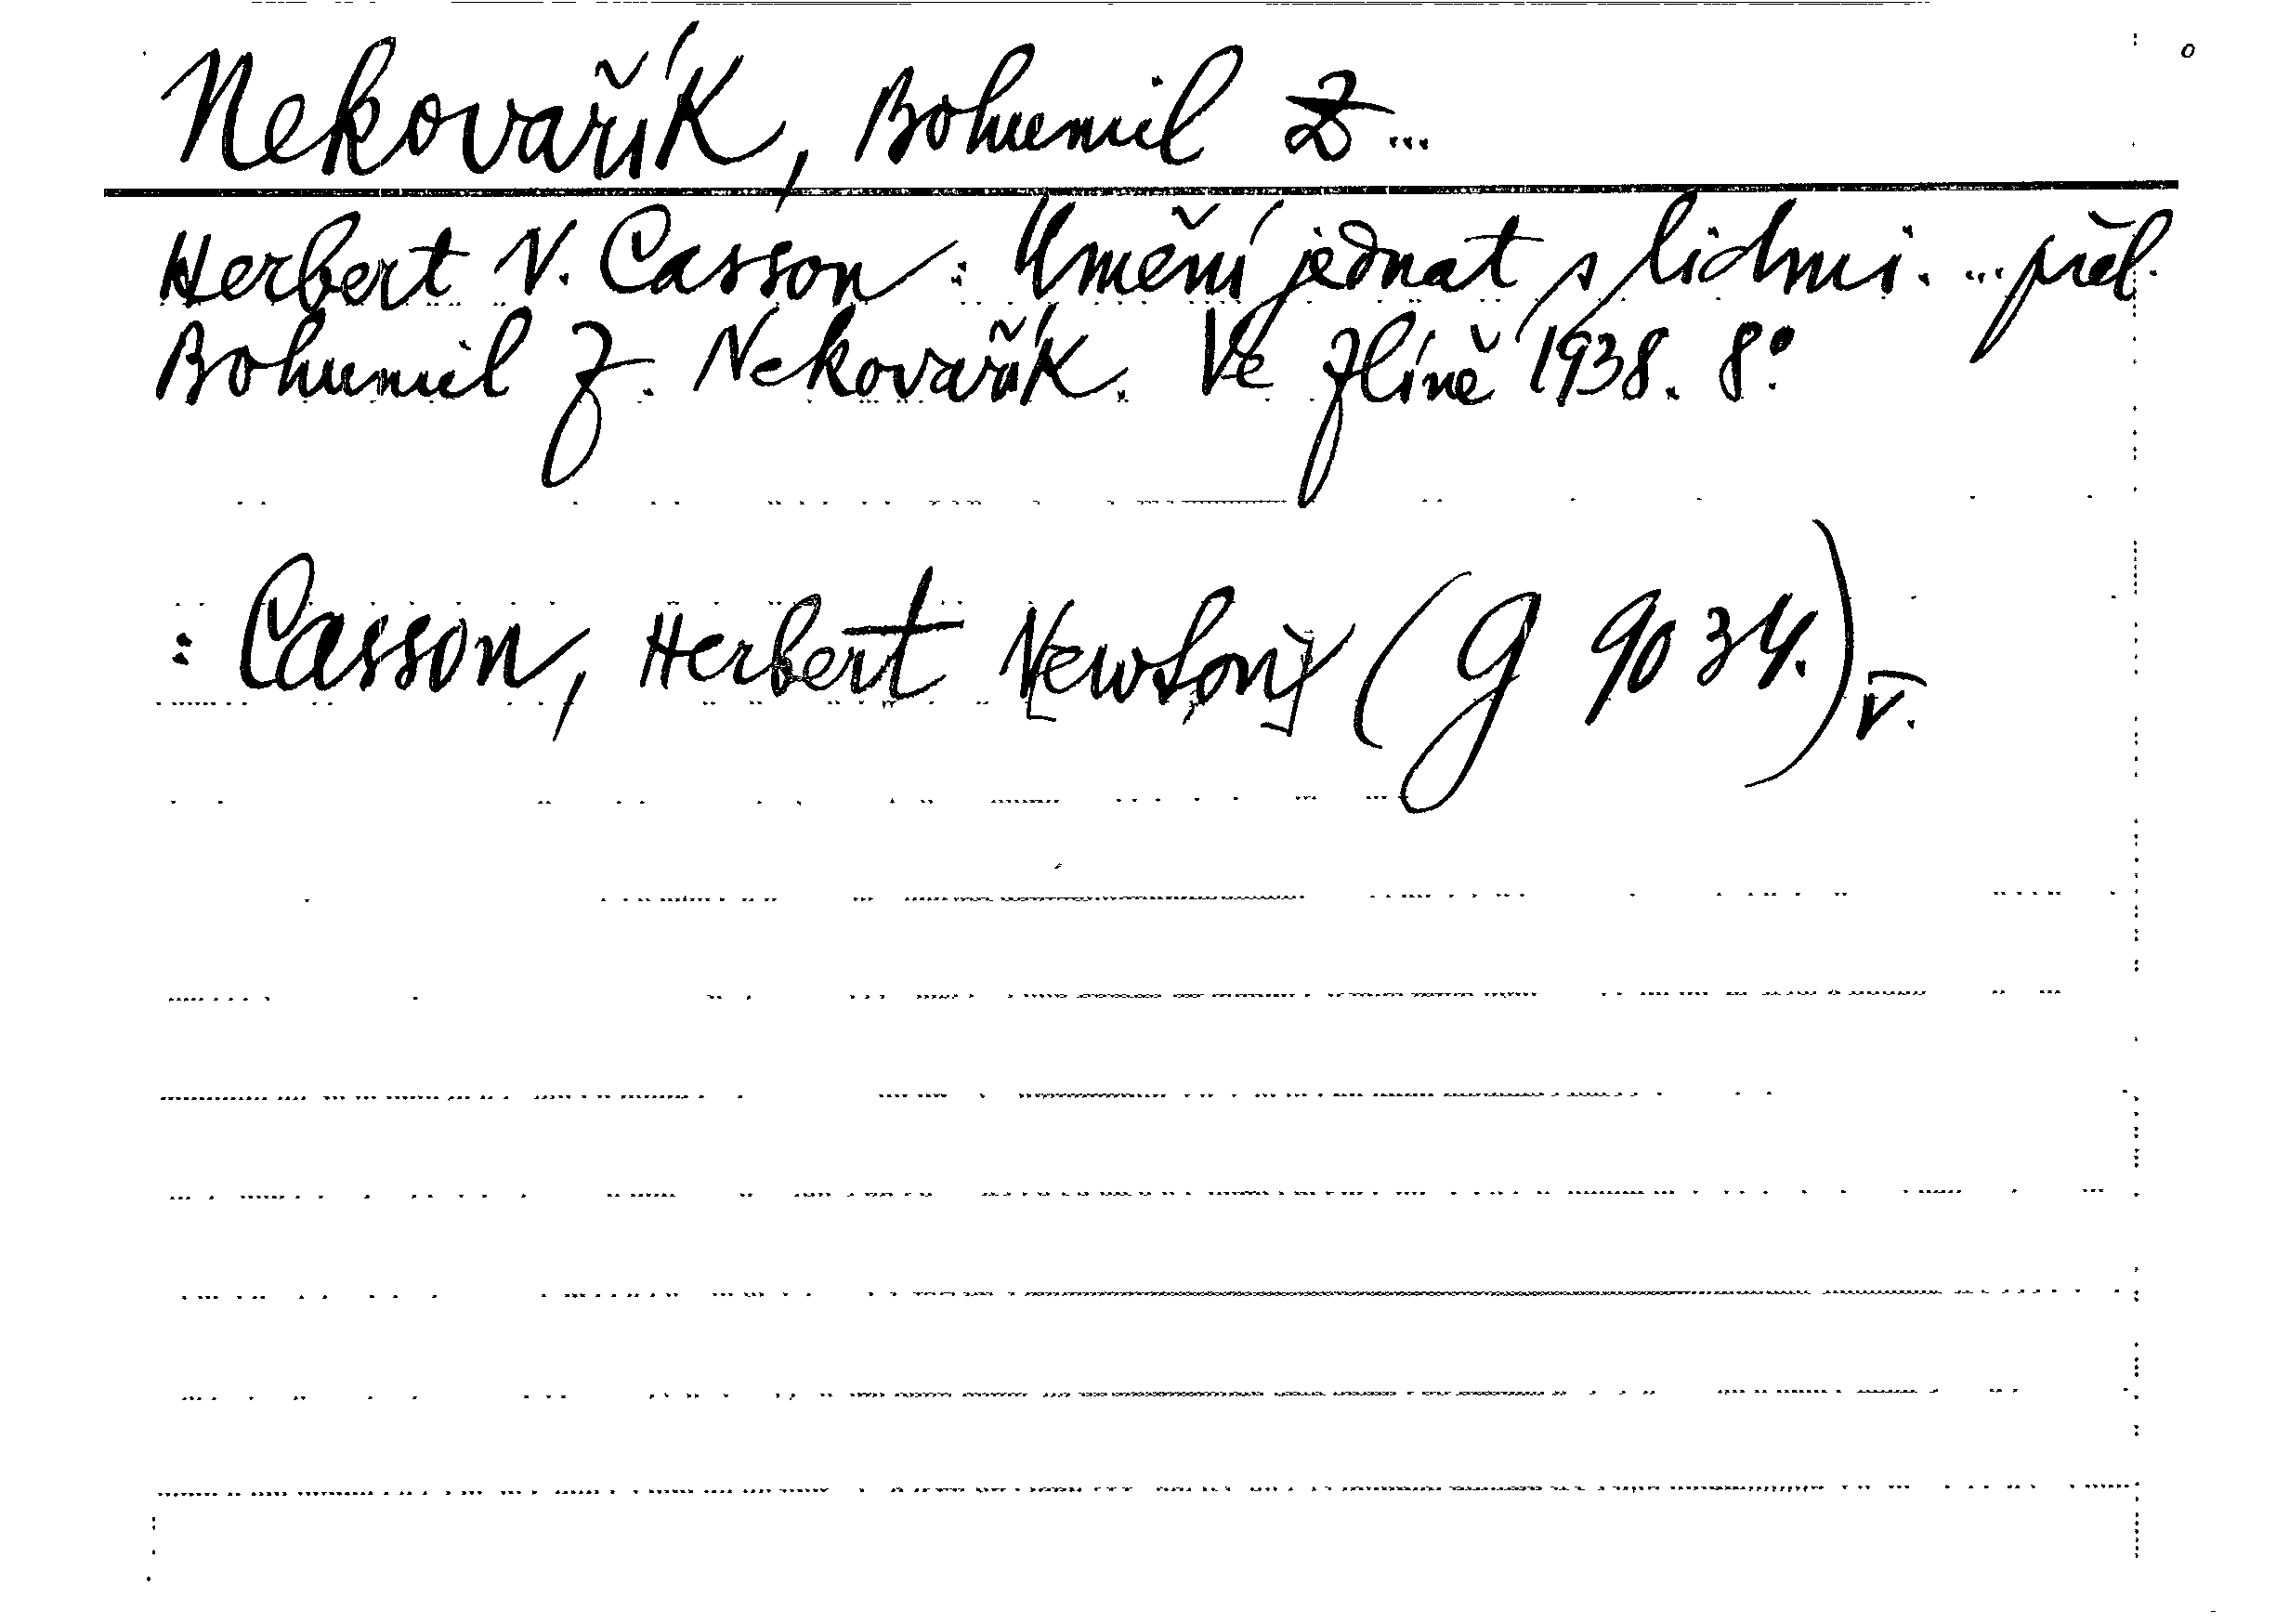 Nekovařík, Bohumil Z...
Herbert N. Casson: Umění jednat s lidmi. ... přel.
Bohumil Z. Nekovařík. Ve Zlíně 1938. 8°.
: Casson, Herbert N[ewton] (G 9034.)